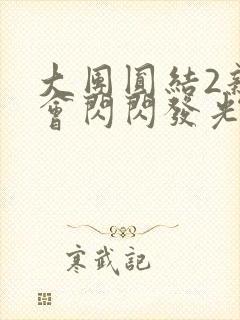 大團圓結2
會閃閃發光
寒武記